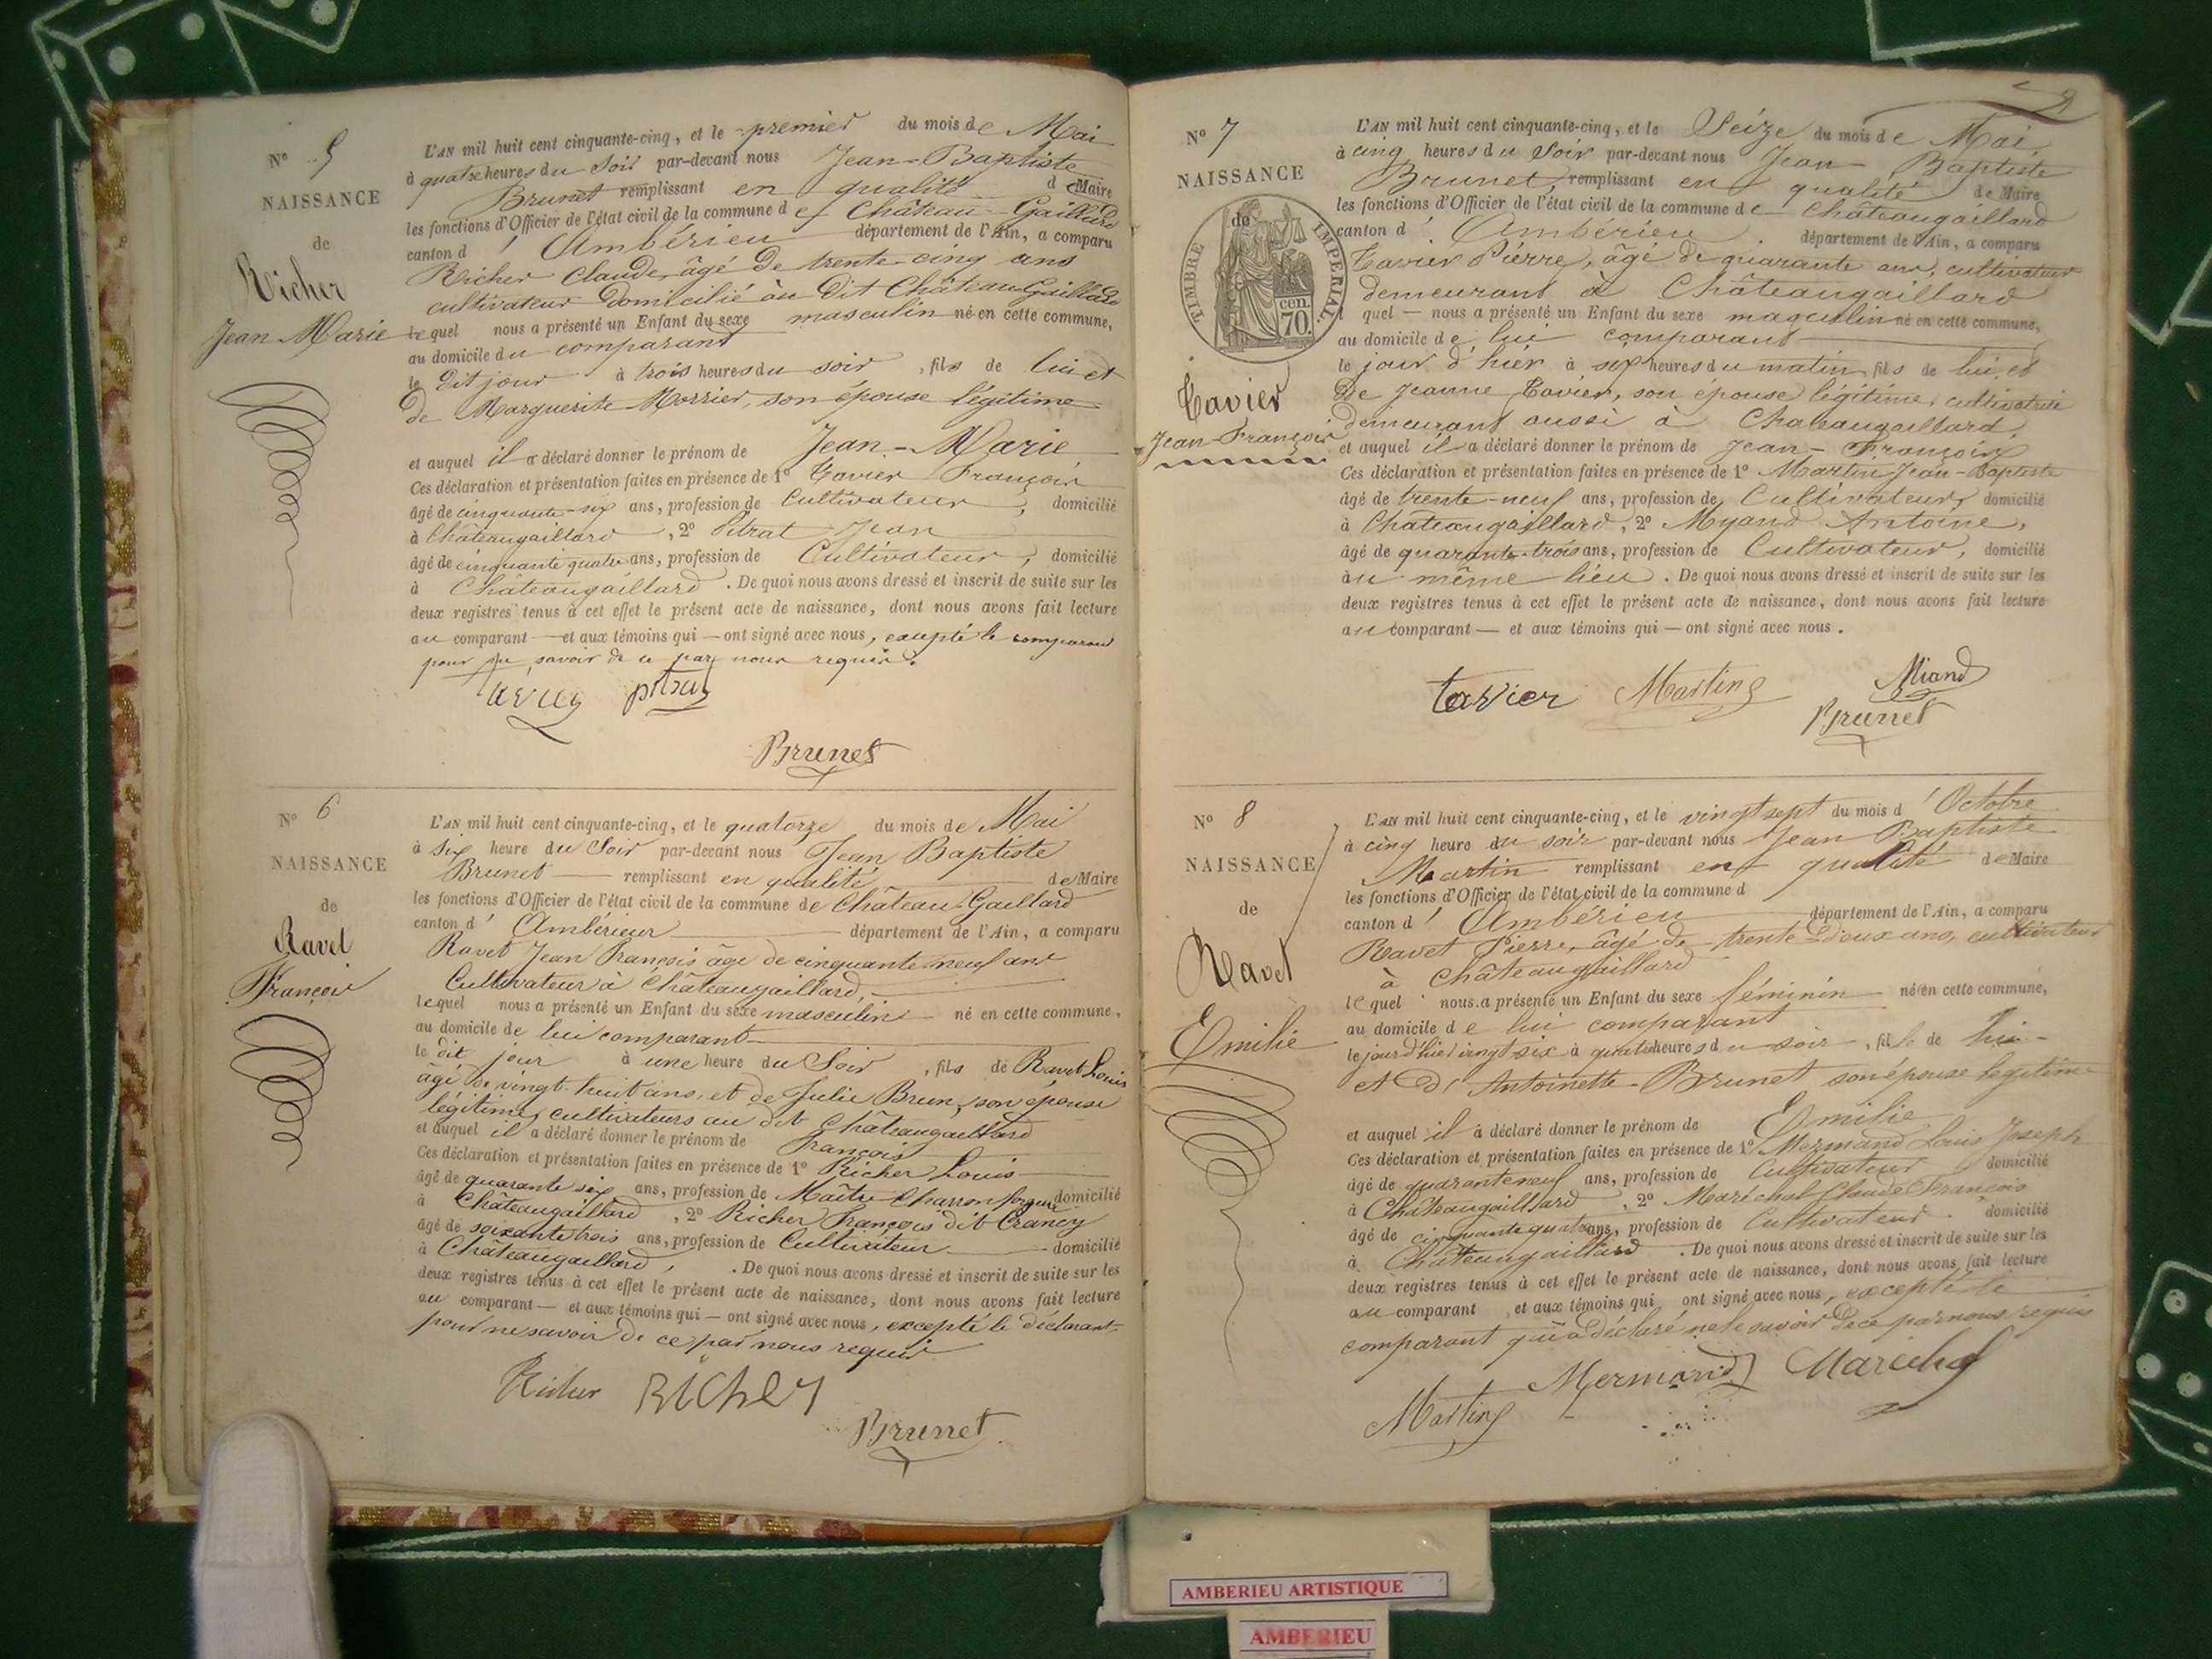 N° 5
NAISSANCE
de
Richer
Jean Marie
L'AN mil huit cent cinquante-cinq, et le premier du mois de Mai
à quatre heures du Soir par-devant nous Jean-Baptiste
Brunet remplissant en qualité de Maire
les fonctions d'Officier de l'état civil de la commune de Château-Gaillard
canton d' Ambérieu département de l'Ain, a comparu
Richer Claude, âgé de trente-cinq ans
cultivateur domicilié au dit Château Gaillard
lequel nous a présenté un Enfant du sexe masculin né en cette commune,
au domicile du comparant
le dit jour à trois heures du soir, fils de lui et
de Marguerite Morrier, son épouse légitime
et auquel il a déclaré donner le prénom de Jean-Marie
Ces déclaration et présentation faites en présence de 1° Tavier François
âgé de cinquante-six ans, profession de Cultivateur, domicilié
à Châteaugaillard, 2° Pitrat Jean
âgé de cinquante quatre ans, profession de Cultivateur, domicilié
à Châteaugaillard. De quoi nous avons dressé et inscrit de suite sur les
deux registres tenus à cet effet le présent acte de naissance, dont nous avons fait lecture
au comparant — et aux témoins qui — ont signé avec nous, excepté le comparant
pour ne savoir de ce par nous requis.
pitrat
Brunet
N° 6
NAISSANCE
de
Ravet
François
L'AN mil huit cent cinquante-cinq, et le quatorze du mois de Mai
à six heure du Soir par-devant nous Jean Baptiste
Brunet remplissant en qualité de Maire
les fonctions d'Officier de l'état civil de la commune de Château-Gaillard
canton d' Ambérieux département de l'Ain, a comparu
Ravet Jean François âge de cinquante neuf ans
Cultivateur à Châteaugaillard,
lequel nous a présenté un Enfant du sexe masculin né en cette commune,
au domicile de lui comparant
le dit jour à une heure du Soir, fils de Ravet Louis
âgé de vingt-huit ans, et de Julie Brun, son épouse
légitime, cultivateurs au dit Châteaugaillard
et auquel il a déclaré donner le prénom de François
Ces déclaration et présentation faites en présence de 1° Richer Louis
âgé de quarante six ans, profession de Maître Charron forgeur domicilié
à Châteaugaillard, 2° Richer François dit Crancy
âgé de soixante trois ans, profession de Cultivateur domicilié
à Châteaugaillard, . De quoi nous avons dressé et inscrit de suite sur les
deux registres tenus à cet effet le présent acte de naissance, dont nous avons fait lecture
au comparant — et aux témoins qui — ont signé avec nous, excepté le déclarant
pour ne savoir de ce par nous requis
Richer RICHEY
Brunet
N° 7
NAISSANCE
de
TIMBRE IMPERIAL
cen.
70.
Tavier
Jean-François
L'AN mil huit cent cinquante-cinq, et le Seize du mois de Mai,
à cinq heures du Soir par-devant nous Jean Baptiste
Brunet, remplissant en qualité de Maire
les fonctions d'Officier de l'état civil de la commune de Châteaugaillard
canton d' Ambérieu département de l'Ain, a comparu
Tavier Pierre, âgé de quarante ans, cultivateur
demeurant à Châteaugaillard
quel — nous a présenté un Enfant du sexe masculin né en cette commune,
au domicile de lui comparant
le jour d'hier à six heures du matin, fils de lui, et
de Jeanne Tavier, son épouse légitime, cultivatrice
demeurant aussi à Chateaugaillard,
et auquel il a déclaré donner le prénom de Jean-François
Ces déclaration et présentation faites en présence de 1° Martin Jean-Baptiste
âgé de trente-neuf ans, profession de Cultivateur, domicilié
à Châteaugaillard, 2° Myand Antoine,
âgé de quarante-trois ans, profession de Cultivateur, domicilié
au même lieu. De quoi nous avons dressé et inscrit de suite sur les
deux registres tenus à cet effet le présent acte de naissance, dont nous avons fait lecture
au comparant — et aux témoins qui — ont signé avec nous.
tavier Martin Miand
Brunet
N° 8
NAISSANCE
de
Ravet
Emilie
L'AN mil huit cent cinquante-cinq, et le vingt sept du mois d' Octobre
à cinq heure du soir par-devant nous Jean Baptiste
Martin remplissant en qualité de Maire
les fonctions d'Officier de l'état civil de la commune d
canton d' Ambérieu département de l'Ain, a comparu
Ravet Pierre, âgé de trente deux ans, cultivateur
à Châteaugaillard
lequel nous a présenté un Enfant du sexe féminin né en cette commune,
au domicile de lui comparant
le jour d'hier vingt six à quatre heures du soir, fille de lui
et d' Antoinette Brunet son épouse légitime
et auquel il a déclaré donner le prénom de Emilie
Ces déclaration et présentation faites en présence de 1° Mermand Louis Joseph
âgé de quarante neuf ans, profession de Cultivateur domicilié
à Châteaugaillard, 2° Maréchal Claude François
âgé de cinquante quatre ans, profession de Cultivateur. domicilié
à Châteaugaillard. De quoi nous avons dressé et inscrit de suite sur les
deux registres tenus à cet effet le présent acte de naissance, dont nous avons fait lecture
au comparant et aux témoins qui ont signé avec nous, excepté le
comparant qui a déclaré ne le savoir de ce par nous requis
Mermand Maréchal
Martin
AMBERIEU ARTISTIQUE
AMBERIEU